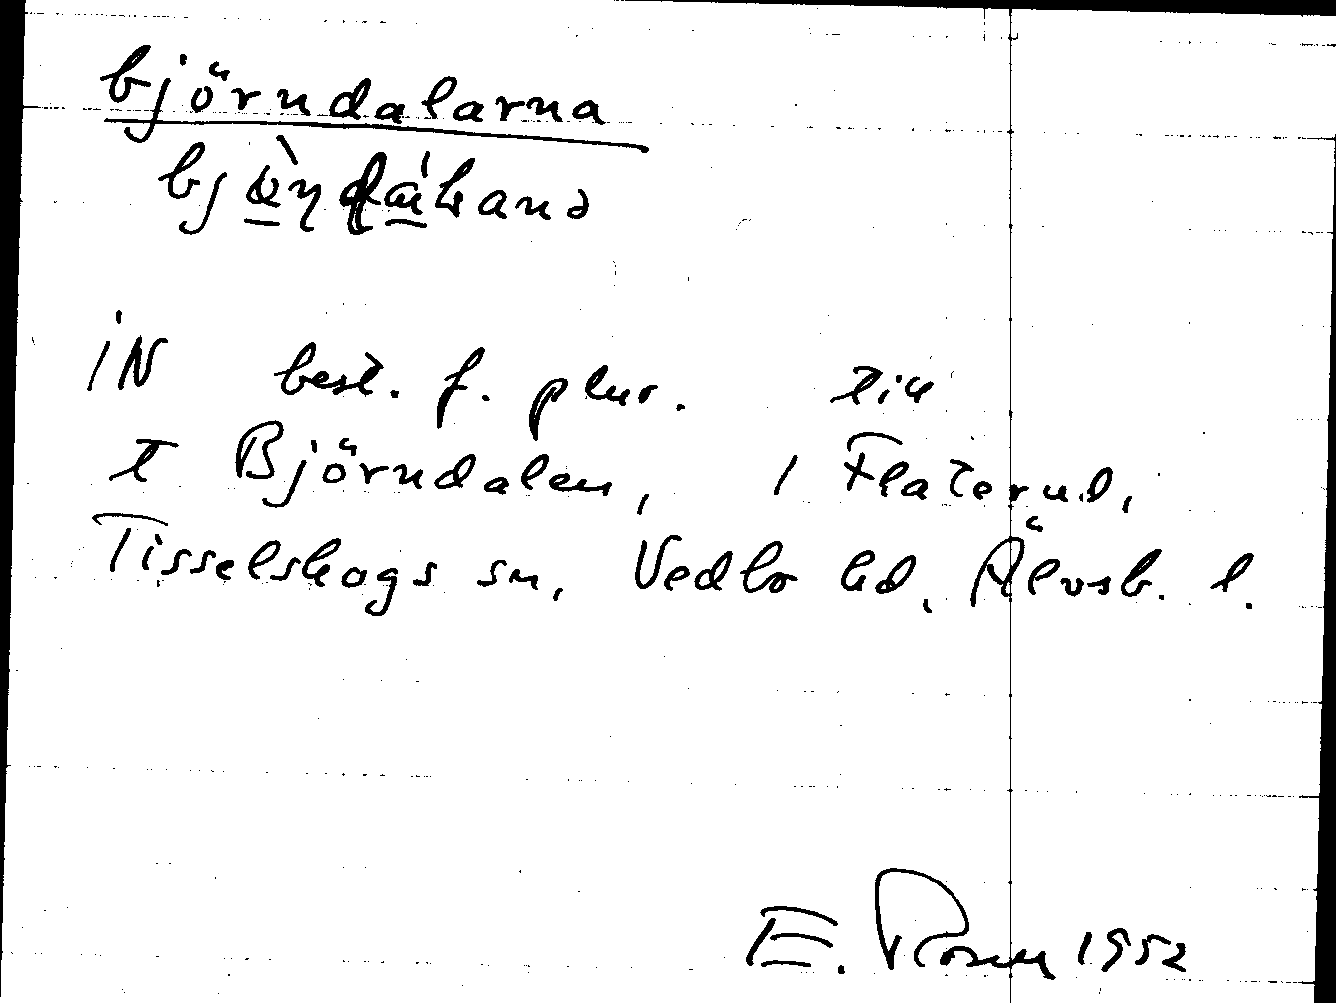 björndalarna
iN best. f. plur. till
t Björndalen, i Flaterud,
Tisselskogs sn, Vedbo hd, Älvsb. l.
E. Rosell 1952